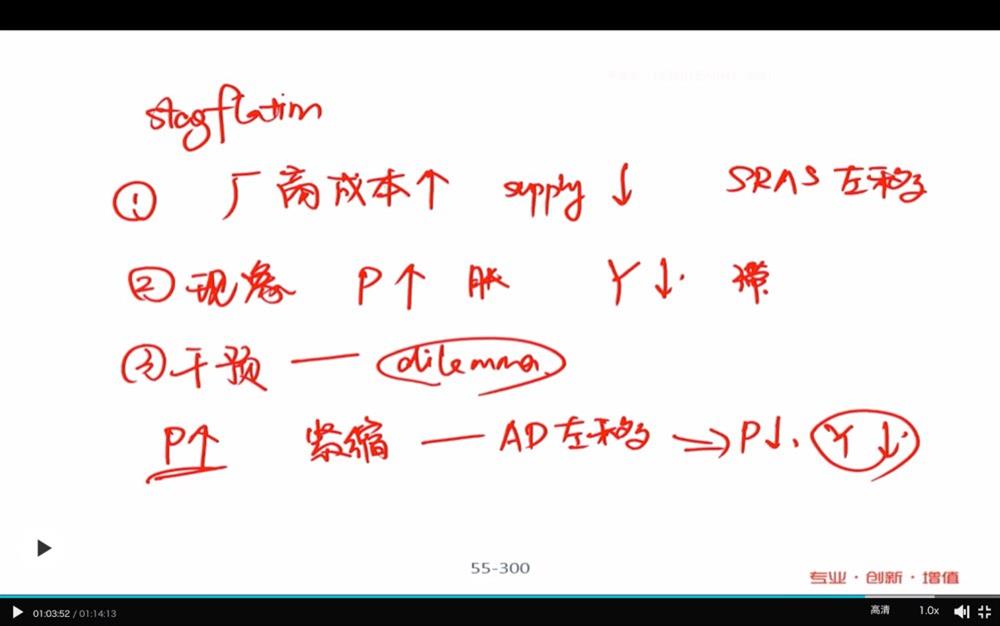 stagflation
① 厂商成本↑ supply ↓ SRAS 左移
② 现象 P↑ 胀 Y↓. 滞
③ 干预 — dilemma
P↑ 紧缩 — AD左移 ⇒ P↓. Y↓.
55-300
专业·创新·增值
01:03:52 / 01:14:13 高清 1.0x